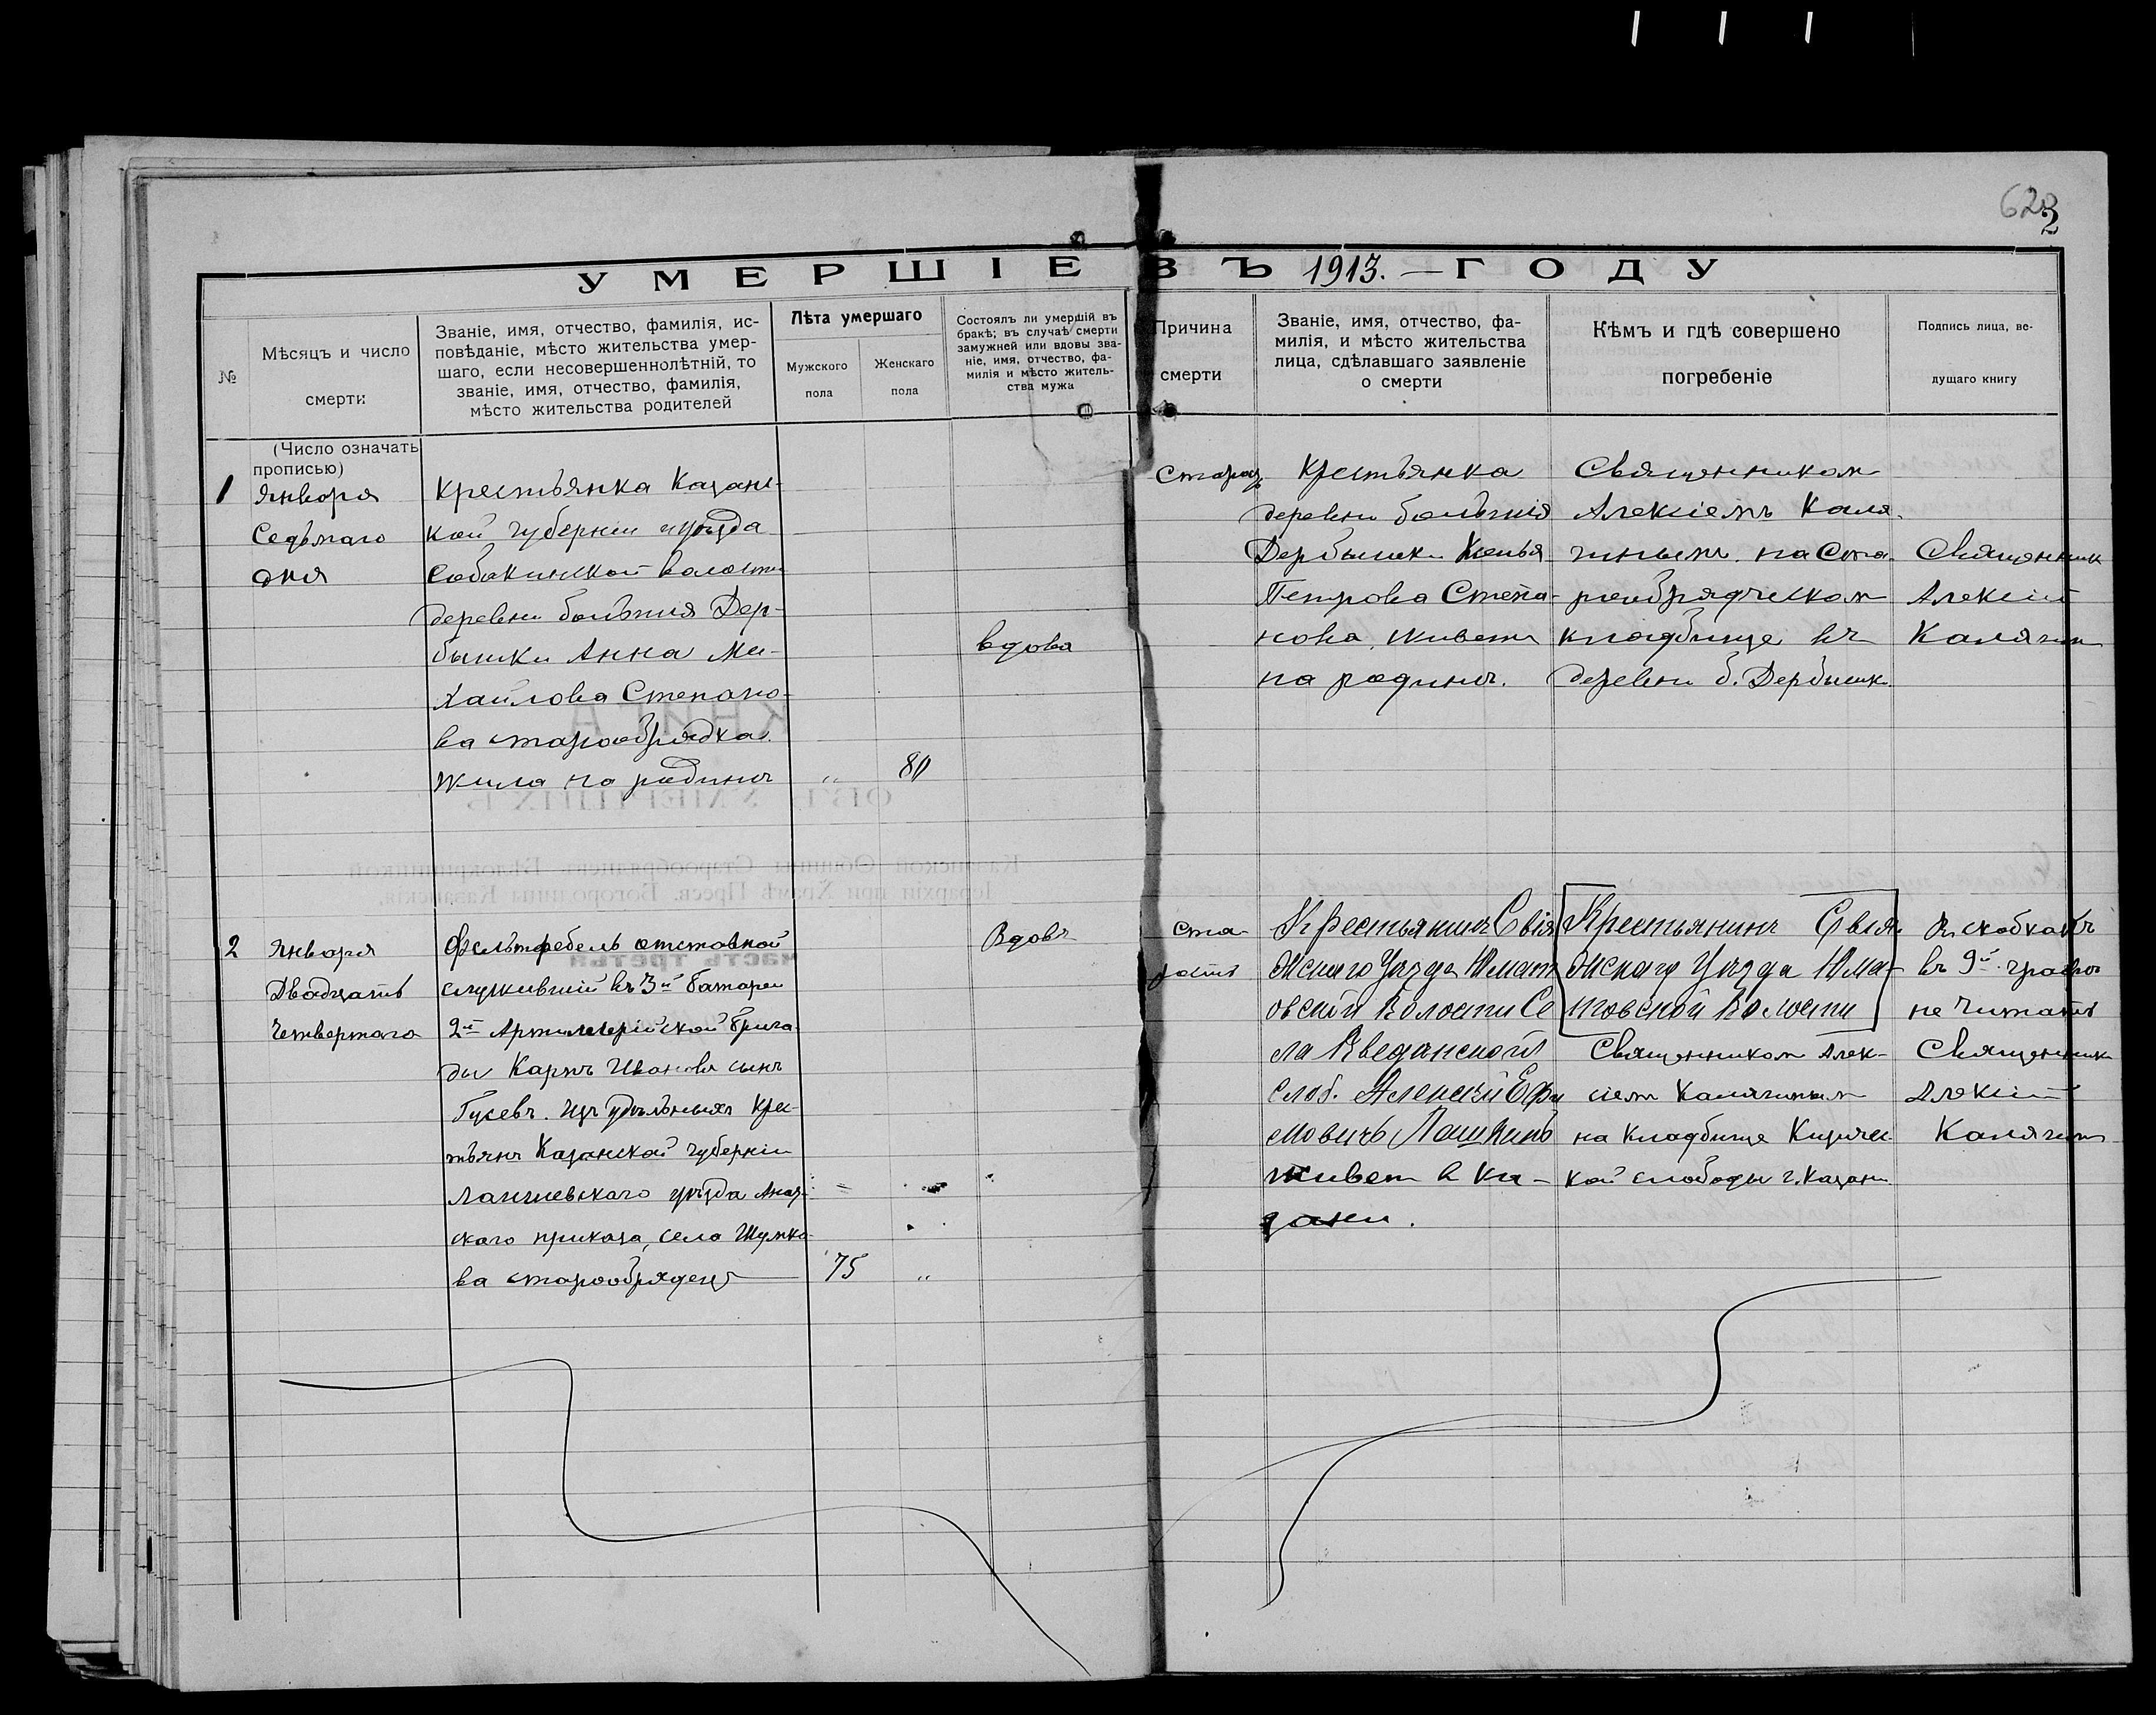 623
2
УМЕРШІЕ ВЪ 1913. — ГОДУ
№
Мѣсяцъ и число
смерти
Званіе, имя, отчество, фамилія, ис-
повѣданіе, мѣсто жительства умер-
шаго, если несовершеннолѣтній, то
званіе, имя, отчество, фамилія,
мѣсто жительства родителей
Лѣта умершаго
Мужского
пола
Женскаго
пола
Состоялъ ли умершій въ
бракѣ; въ случаѣ смерти
замужней или вдовы зва-
ніе, имя, отчество, фа-
милія и мѣсто житель-
ства мужа
Причина
смерти
Званіе, имя, отчество, фа-
милія, и мѣсто жительства
лица, сдѣлавшаго заявленіе
о смерти
Кѣмъ и гдѣ совершено
погребеніе
Подпись лица, ве-
дущаго книгу
(Число означать
прописью)
1
Января
Седьмаго
дня
Крестьянка Казанс-
кой губерніи и уѣзда
Собакинской волости
деревни большія Дер-
бышки Анна Ми-
хайлова Степано-
ва старообрядка.
Жила на родинѣ
„
80
вдова
Крестьянка
деревни большія
Дербышки
Петрова Степа-
нова, живетъ
на родинѣ.
Священником
Алексіемъ Каля-
гинымъ на Ста-
рообрядческом
кладбище въ
деревни б. Дербышк.
Священник
Алексій
Калягин
2
Января
Двадцать
Четвертаго
Фельтфебель отставной
служившій въ 3й батареи
2й Артиллерійской брига-
ды Карпъ Ивановъ сынъ
Гусевъ. Изъ удѣльныхъ крес-
тьянъ Казанской губерніи
Лаишевскаго уѣзда
скаго приказа, села Шумко-
ва старообрядец
75
„
Вдовъ
Ста-
рость
Крестьянинъ Свія
жскаго Уѣзда Юмат
овской Волости Се
ла Введенской
слоб. Алексѣй Ефи
мовичъ Пашкинъ
живет в Ка-
зани.
Крестьянинъ Свія-
жскаго Уѣзда Юма-
товской Волости
Священником Алек-
сіем Калягиным
на Кладбище Кизичес-
кой слободы г. Казани
В скобкахъ
въ 9й графѣ
не читать
Священник
Алексій
Калягин